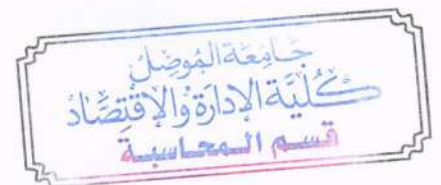 جَامِعَة المُوصِل
كُلِّيَّة الإدَارَة وَالإقْتِصَاد
قسم المحاسبة